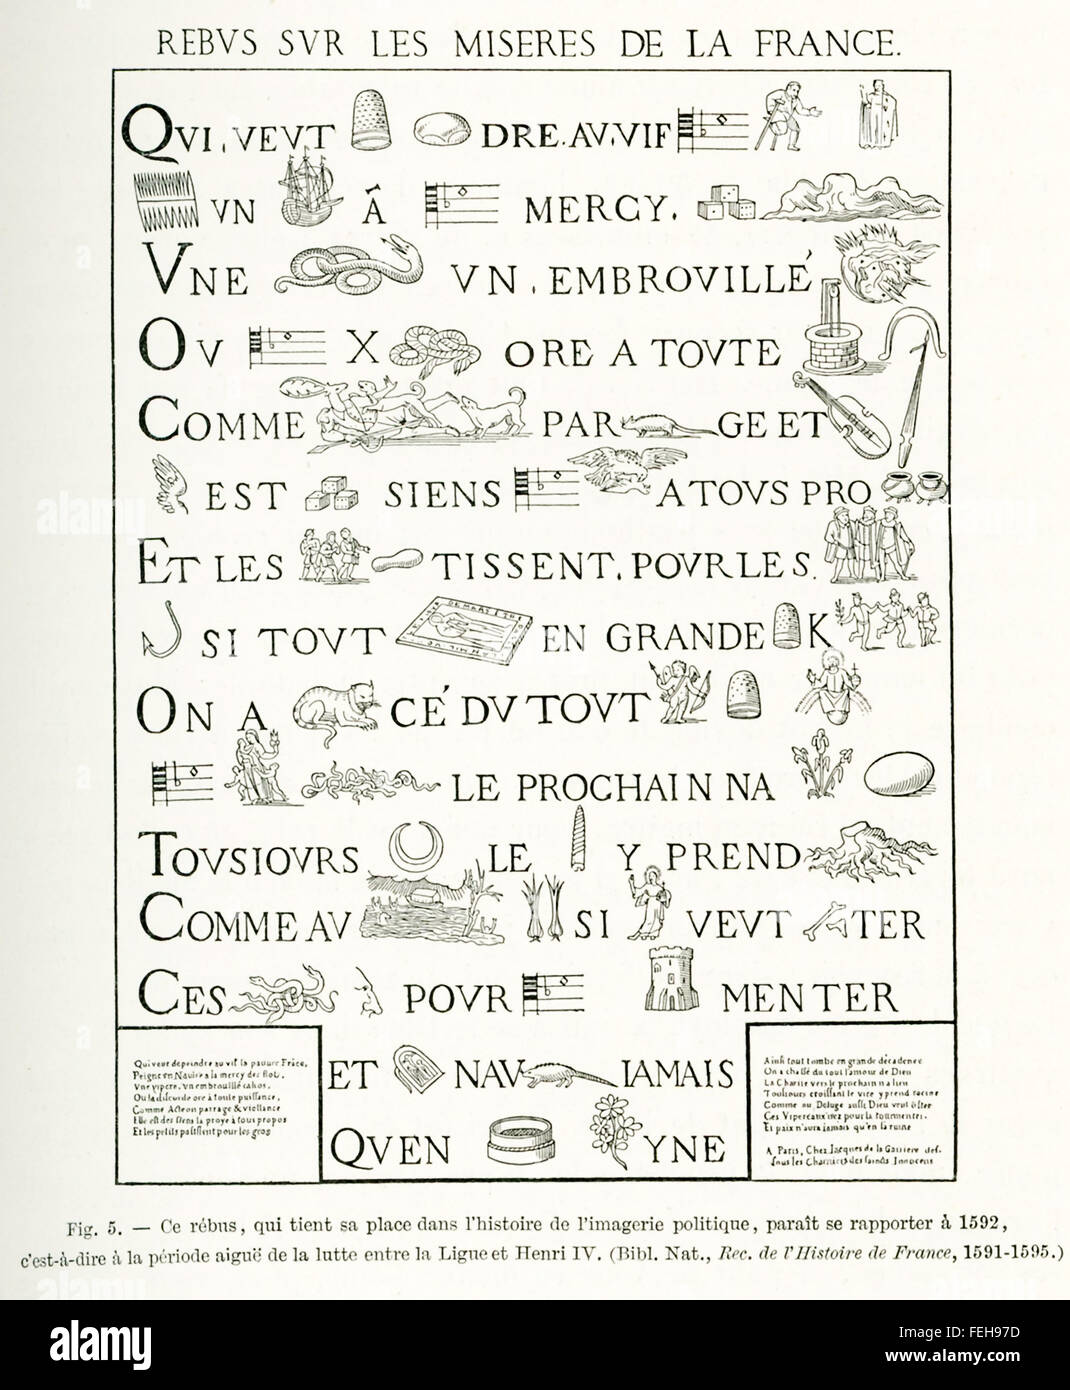 REBVS SVR LES MISERES DE LA FRANCE.
QVI, VEVT DRE. AV. VIF
VN Á MERCY.
VNE VN, EMBROVILLÉ
OV X ORE A TOVTE
COMME PAR GE ET
EST SIENS A TOVS PRO
ET LES TISSENT. POVR LES.
SI TOVT EN GRANDE K
ON A CÉ DV TOVT
LE PROCHAIN NA
TOVSIOVRS LE Y PREND
COMME AV SI VEVT TER
CES POVR MENTER
ET NAV IAMAIS
QVEN YNE
Qui veut depeindre au vif la pauure Frāce,
Peigne vn Nauire a la mercy des flots,
Vne vipere, vn embrouillé cahos,
Ou la discorde ore à toute puissance,
Comme Acteon partage & viollance
Elle est des siens la proye a tous propos
Et les petits patissent pour les gros
Ainsi tout tombe en grande décadence
On a chassé du tout l'amour de Dieu
La Charite vers le prochain n'a lieu
Tousiours croissant le vice y prend racine
Comme au Deluge aussi Dieu veut oster
Ces Vipereaux nez pour la tourmenter.
Et paix n'aura iamais qu'en la ruine
A Paris, Chez Jacques de la
Sous les Charniers des saincts Innocens
Fig. 5. — Ce rébus, qui tient sa place dans l'histoire de l'imagerie politique, paraît se rapporter à 1592,
c'est-à-dire à la période aiguë de la lutte entre la Ligue et Henri IV. (Bibl. Nat., Rec. de l'Histoire de France, 1591-1595.)
alamy
Image ID: FEH97D
www.alamy.com